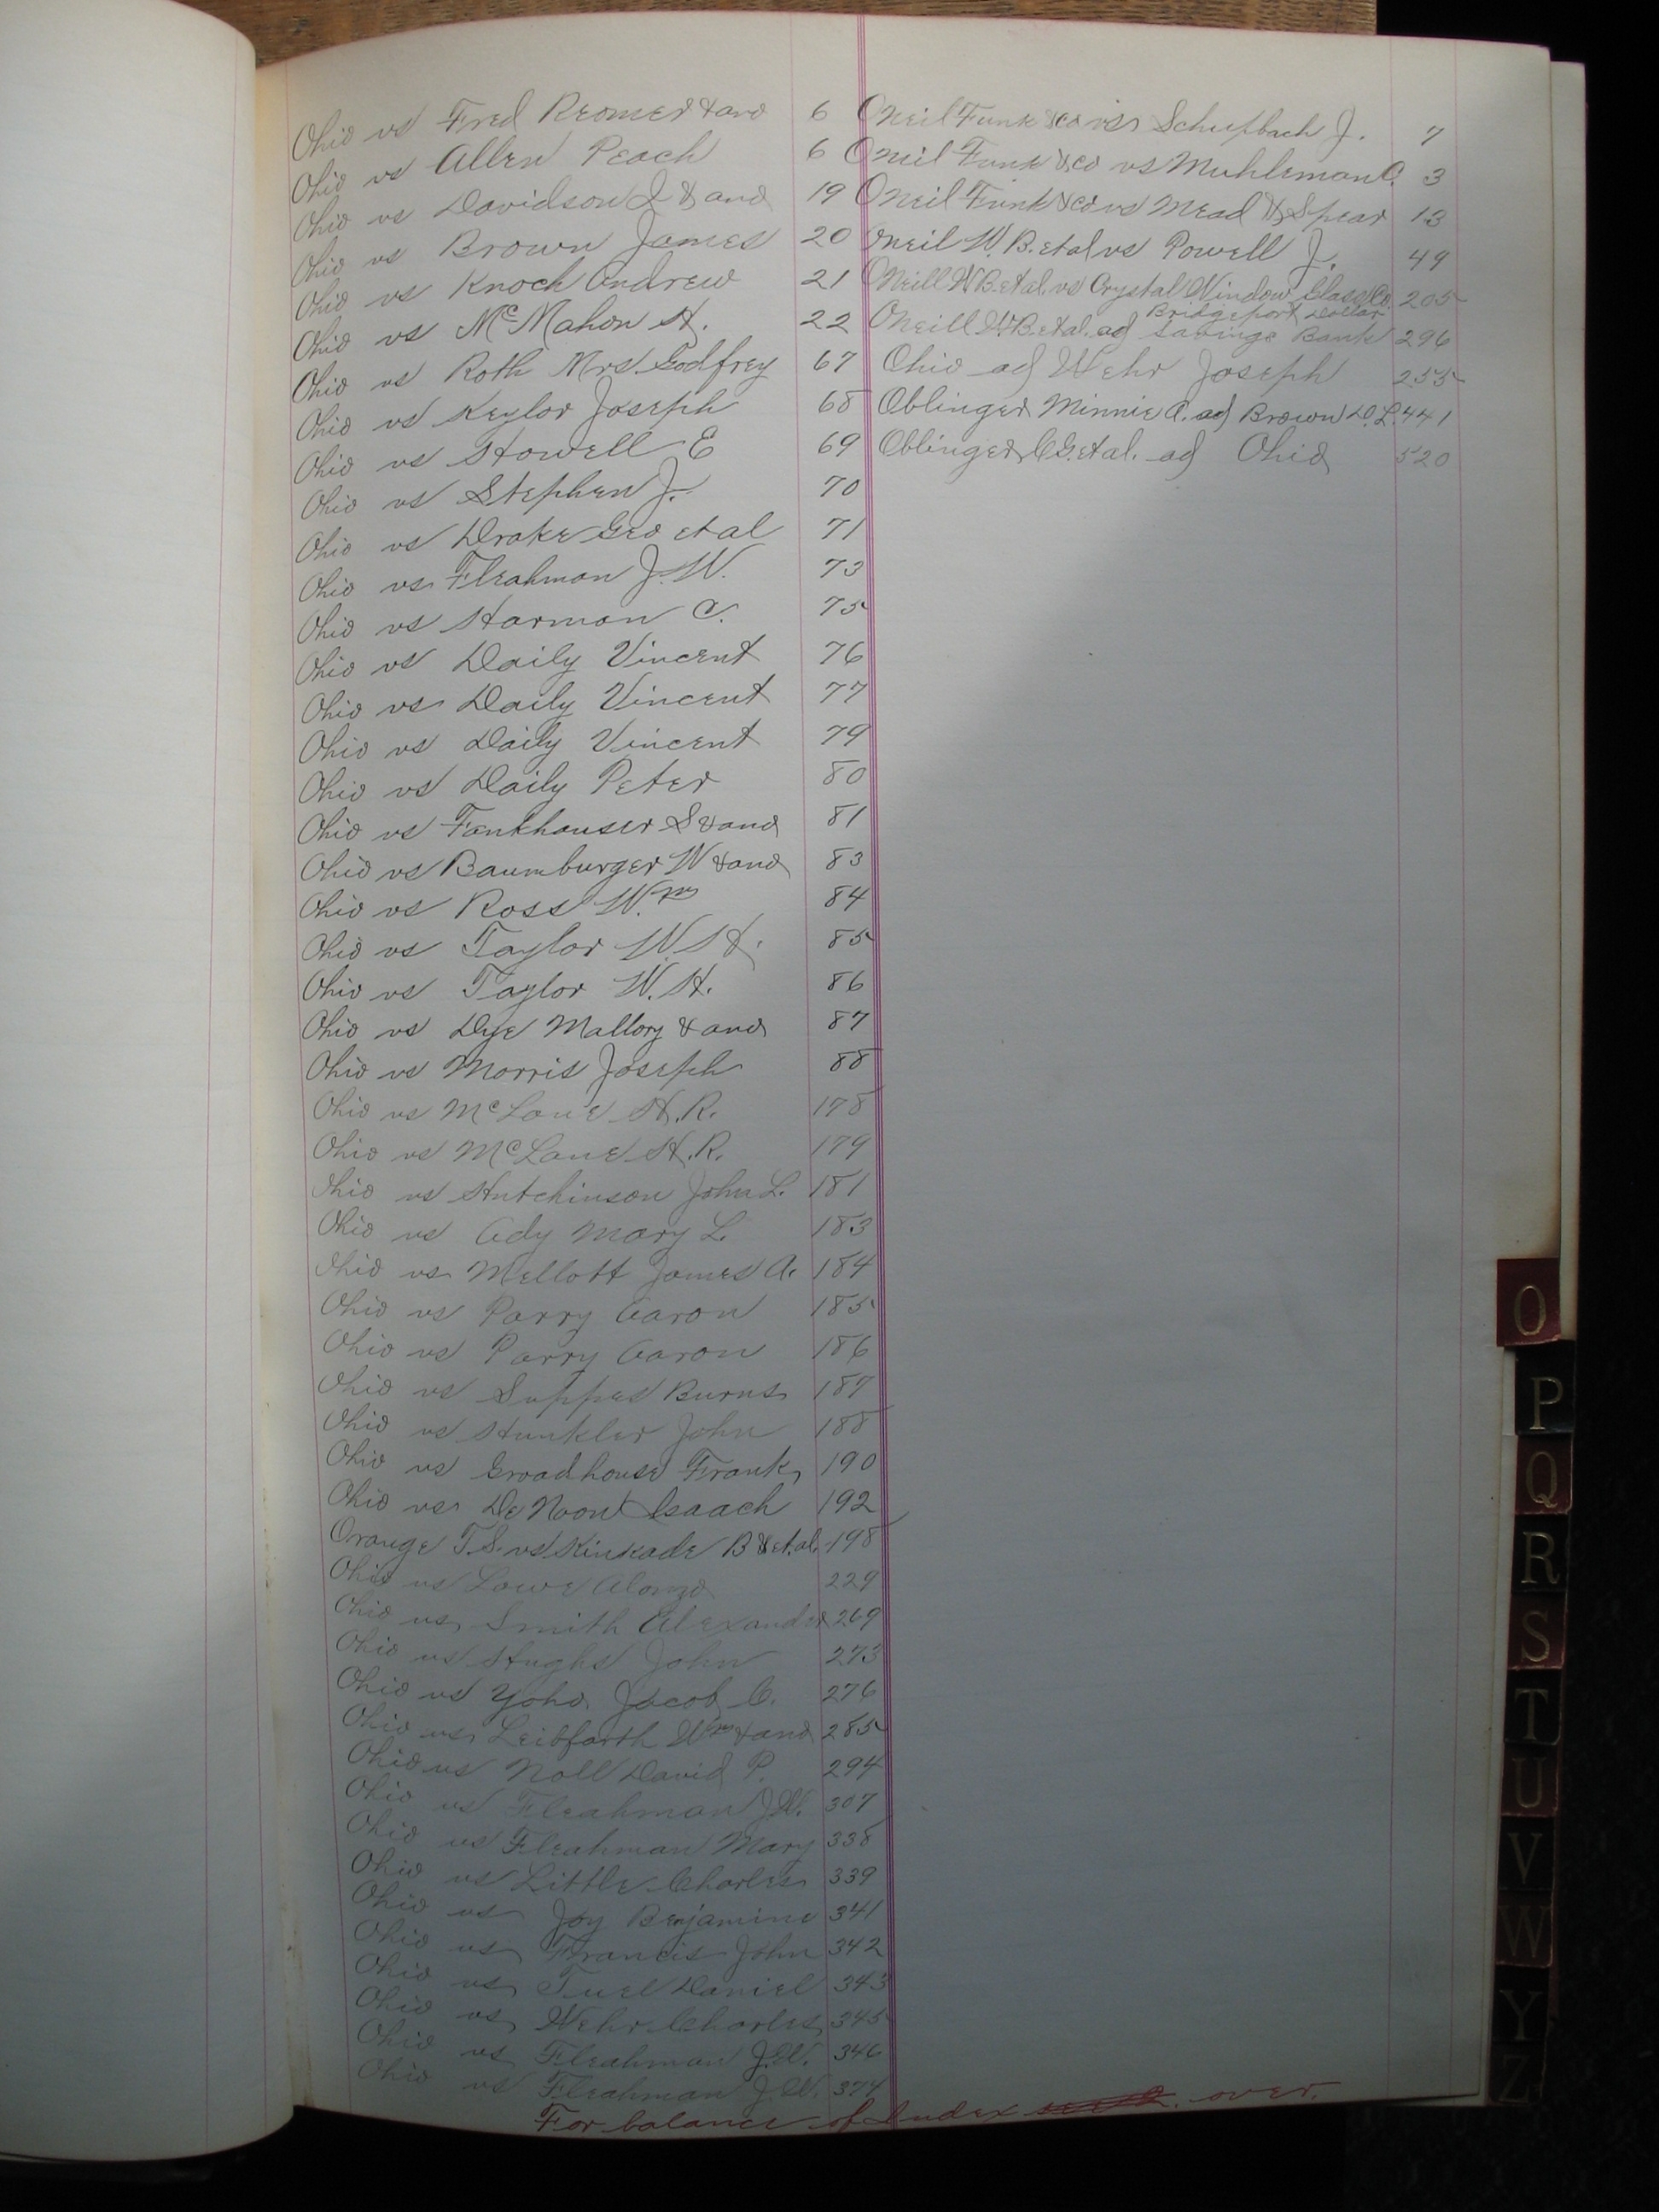 Ohio vs Fred Reomer & and 6
Ohio vs Allen Peach 6
Ohio vs Davidson I & and 19
Ohio vs Brown James 20
Ohio vs Knoch Andrew 21
Ohio vs McMahon H. 22
Ohio vs Roth Mrs Godfrey 67
Ohio vs Keylor Joseph 68
Ohio vs Howell E 69
Ohio vs Stephen J. 70
Ohio vs Drake Geo et al 71
Ohio vs Fleahman J. W. 73
Ohio vs Harmon C. 75
Ohio vs Daily Vincent 76
Ohio vs Daily Vincent 77
Ohio vs Daily Vincent 79
Ohio vs Daily Peter 80
Ohio vs Fankhauser S & and 81
Ohio vs Baumburger W & and 83
Ohio vs Ross Wm 84
Ohio vs Taylor W. H. 85
Ohio vs Taylor W. H. 86
Ohio vs Dye Mallory & and 87
Ohio vs Morris Joseph 88
Ohio vs McLane H. R. 178
Ohio vs McLane H. R. 179
Ohio vs Hutchinson John L. 181
Ohio vs Ady Mary L. 183
Ohio vs Mellott James A. 184
Ohio vs Parry Aaron 185
Ohio vs Parry Aaron 186
Ohio vs Suppes Burns 187
Ohio vs Hunkler John 188
Ohio vs Broadhouse Frank 190
Ohio vs De Noon Isaach 192
Orange T.S. vs Kinkade B & et.al. 198
Ohio vs Lowe Alonzo 229
Ohio vs Smith Alexander 269
Ohio vs Hughs John 273
Ohio vs Yoho Jacob C. 276
Ohio vs Leibfarth Wm & and 285
Ohio vs Noll David P. 294
Ohio vs Fleahman J.W. 307
Ohio vs Fleahman Mary 338
Ohio vs Little Charles 339
Ohio vs Joy Benjamine 341
Ohio vs Francis John 342
Ohio vs Tuel Daniel 343
Ohio vs Wehr Charles 345
Ohio vs Fleahman J.W. 346
Ohio vs Fleahman J.W. 374
For balance of Index over.
Oneil Funk & co vs Schupbach J. 7
Oneil Funk & co vs Muhleman C. 3
Oneil Funk & co vs Mead & Spear 13
Oneil W. B. et al vs Powell J. 49
ONeill W B. et al. vs Crystal Window Glass Co. 205
Bridgeport Dollar
ONeill W. B. et al. ad Savings Bank 296
Ohio ad Wehr Joseph 255
Oblinger Minnie C. ad Brown D. L. 441
Oblinger C G. et al. ad Ohio 520
O
P
Q
R
S
T
U
V
W
Y
Z